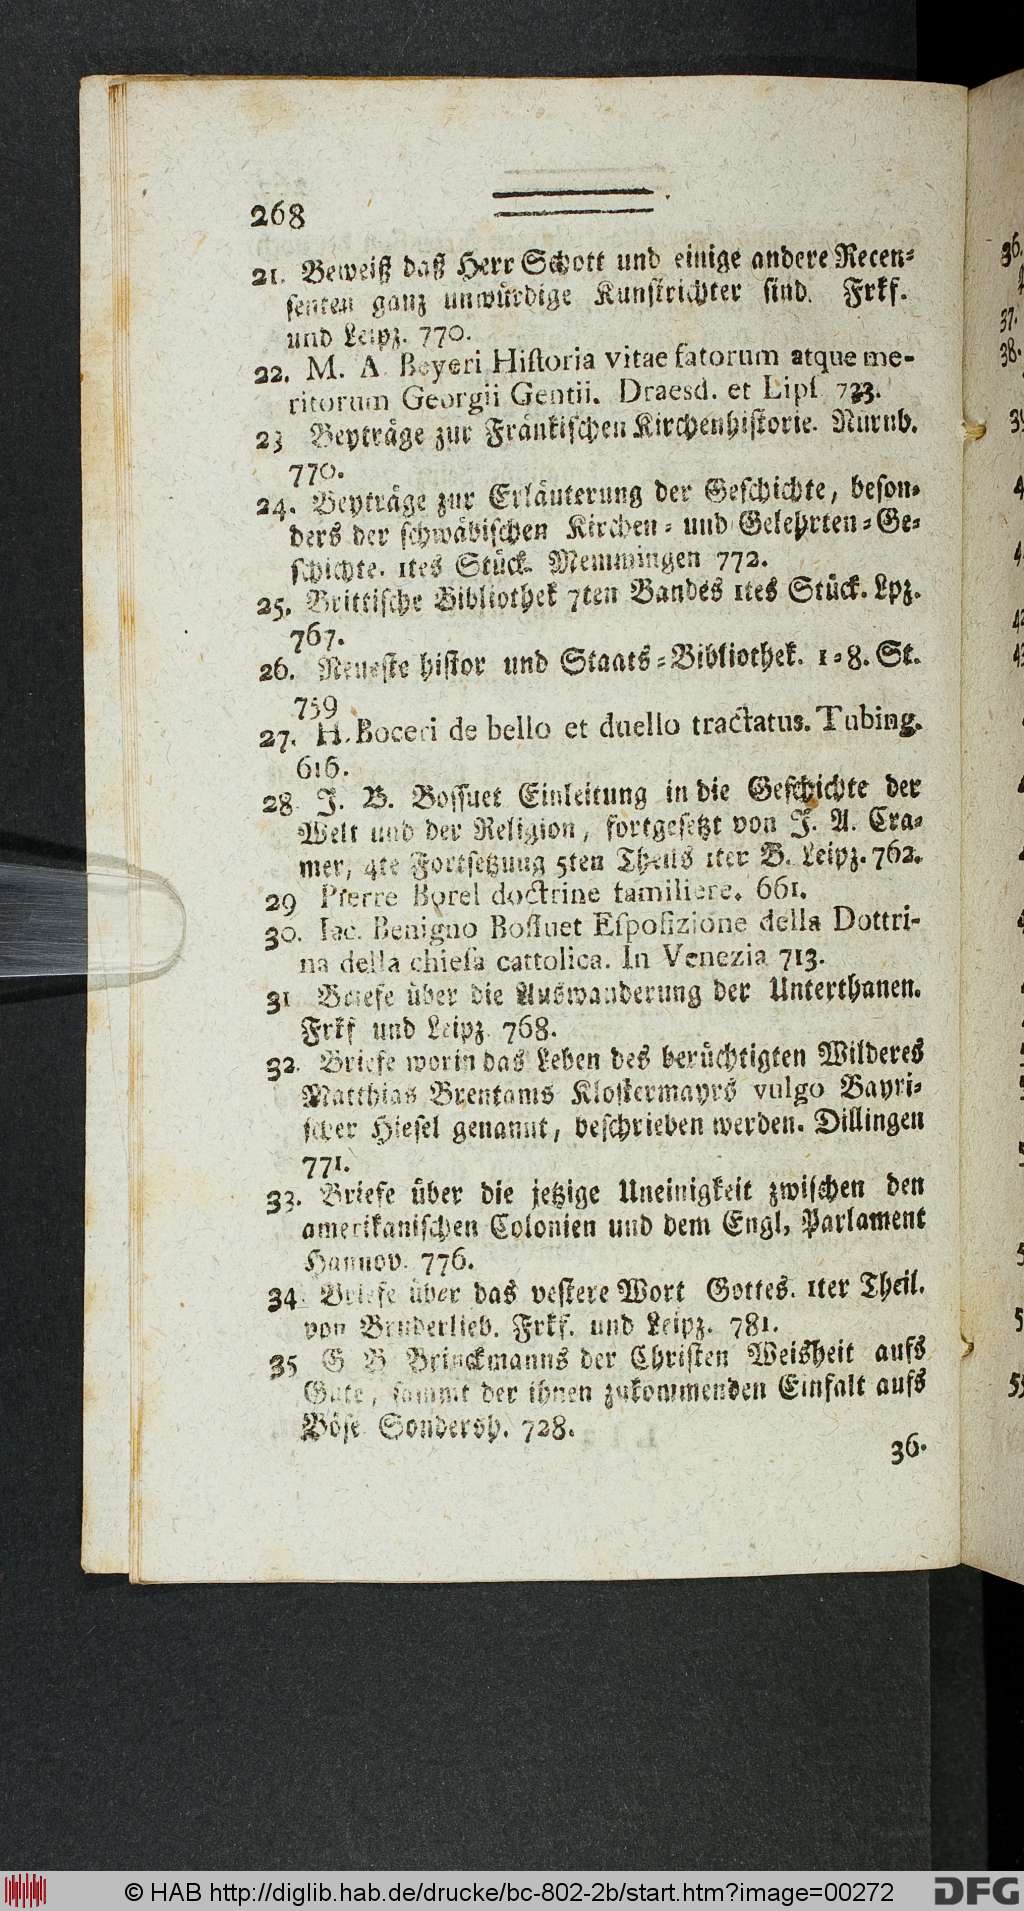 268
21. Beweiß daß Herr Schott und einige andere Recen⸗
senten ganz unwürdige Kunstrichter sind. Frkf.
und Leipz. 770.
22. M. A. Beyeri Hiſtoria vitae fatorum atque me-
ritorum Georgii Gentii. Draesd. et Lipſ 733.
23 Beyträge zur Fränkischen Kirchenhistorie. Nürnb.
770.
24. Beyträge zur Erläuterung der Geschichte, beson⸗
ders der schwäbischen Kirchen⸗ und Gelehrten⸗Ge⸗
schichte. 1tes Stück. Memmingen 772.
25. Brittische Bibliothek 7ten Bandes 1tes Stück. Lpz.
767.
26. Neueste histor und Staats⸗Bibliothek. 1⸗8. St.
759
27. H. Boceri de bello et duello tractatus. Tubing.
616.
28. J. B. Bossuet Einleitung in die Geschichte der
Welt und der Religion, fortgesetzt von J. A. Cra⸗
mer, 4te Fortsetzung 5ten Theils 1ter B. Leipz. 762.
29 Pierre Borel doctrine familiere. 661.
30. Iac. Benigno Boſſuet Eſpoſizione della Dottri-
na della chieſa cattolica. In Venezia 713.
31 Briefe über die Auswanderung der Unterthanen.
Frkf und Leipz 768.
32. Briefe worin das Leben des berüchtigten Wilderes
Matthias Brentams Klostermayrs vulgo Bayri⸗
scher Hiesel genannt, beschrieben werden. Dillingen
771.
33. Briefe über die jetzige Uneinigkeit zwischen den
amerikanischen Colonien und dem Engl, Parlament
Hannov. 776.
34. Briefe über das vestere Wort Gottes. 1ter Theil.
von Bruderlieb. Frkf. und Leipz. 781.
35 G B Brinckmanns der Christen Weisheit aufs
Gute, sammt der ihnen zukommenden Einfalt aufs
Böse Sondersh. 728.
36.
© HAB http://diglib.hab.de/drucke/bc-802-2b/start.htm?image=00272
DFG